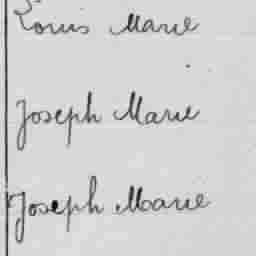 Louis Marie
Joseph Marie
Joseph Marie